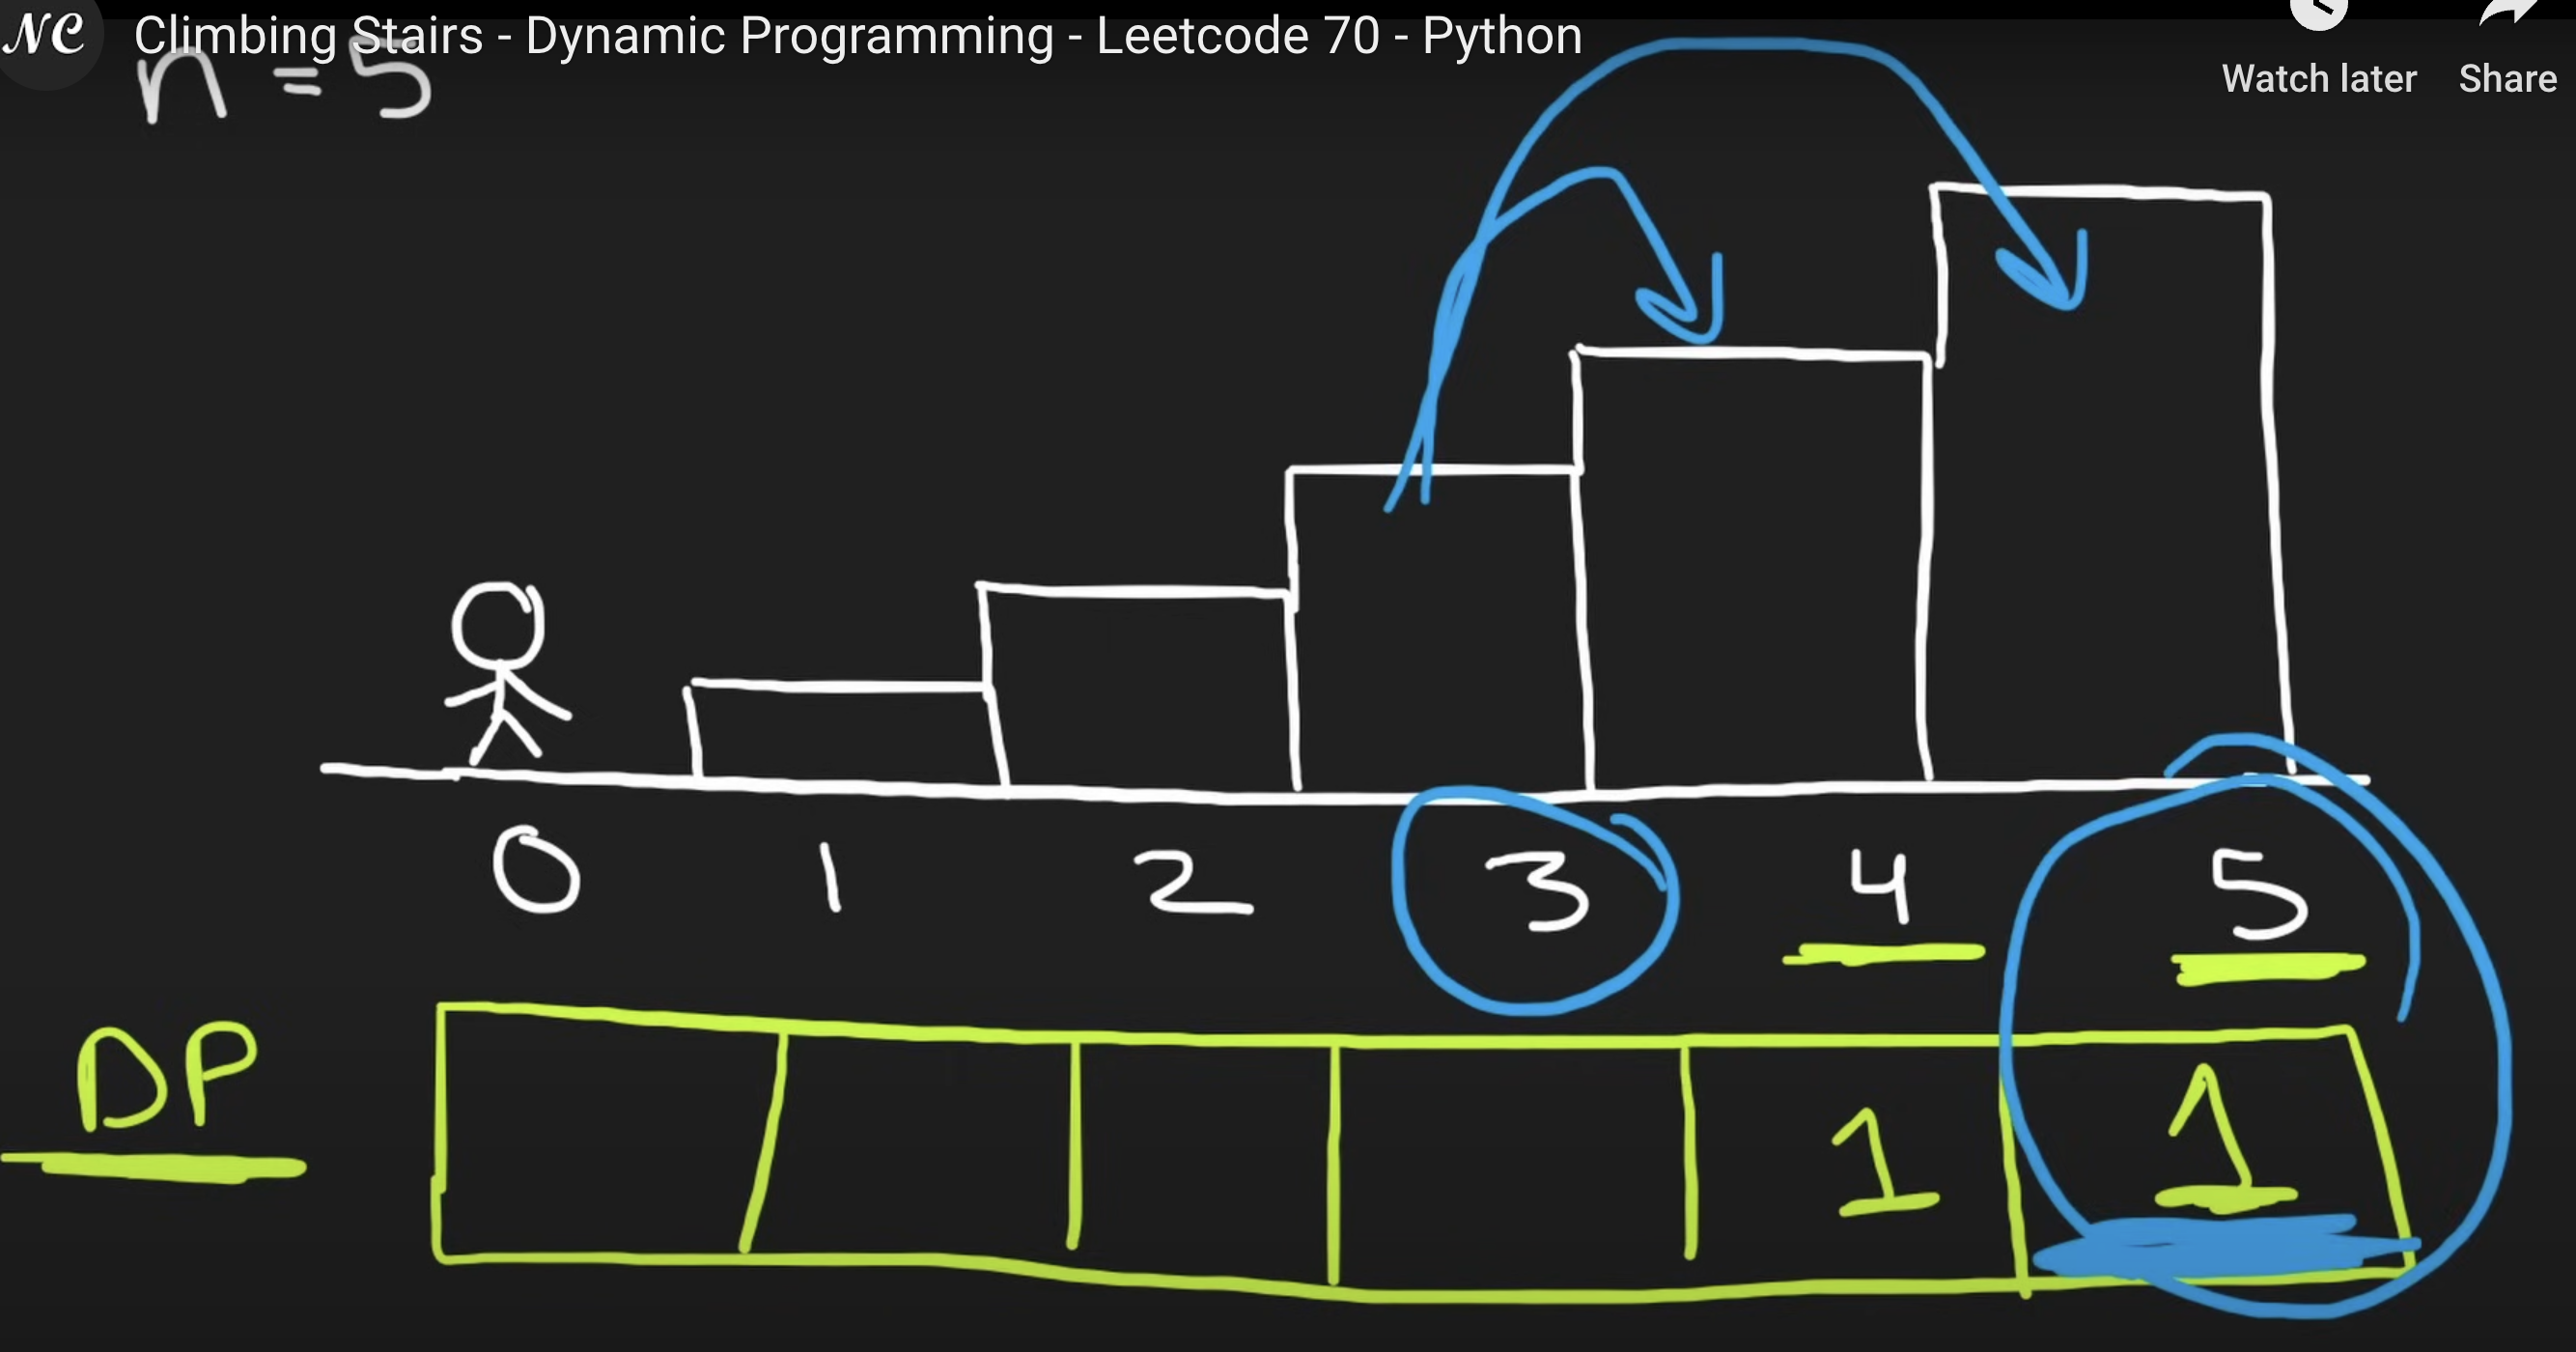 NC Climbing Stairs - Dynamic Programming - Leetcode 70 - Python
Watch later Share
n = 5
0 1 2 3 4 5
DP 1 1